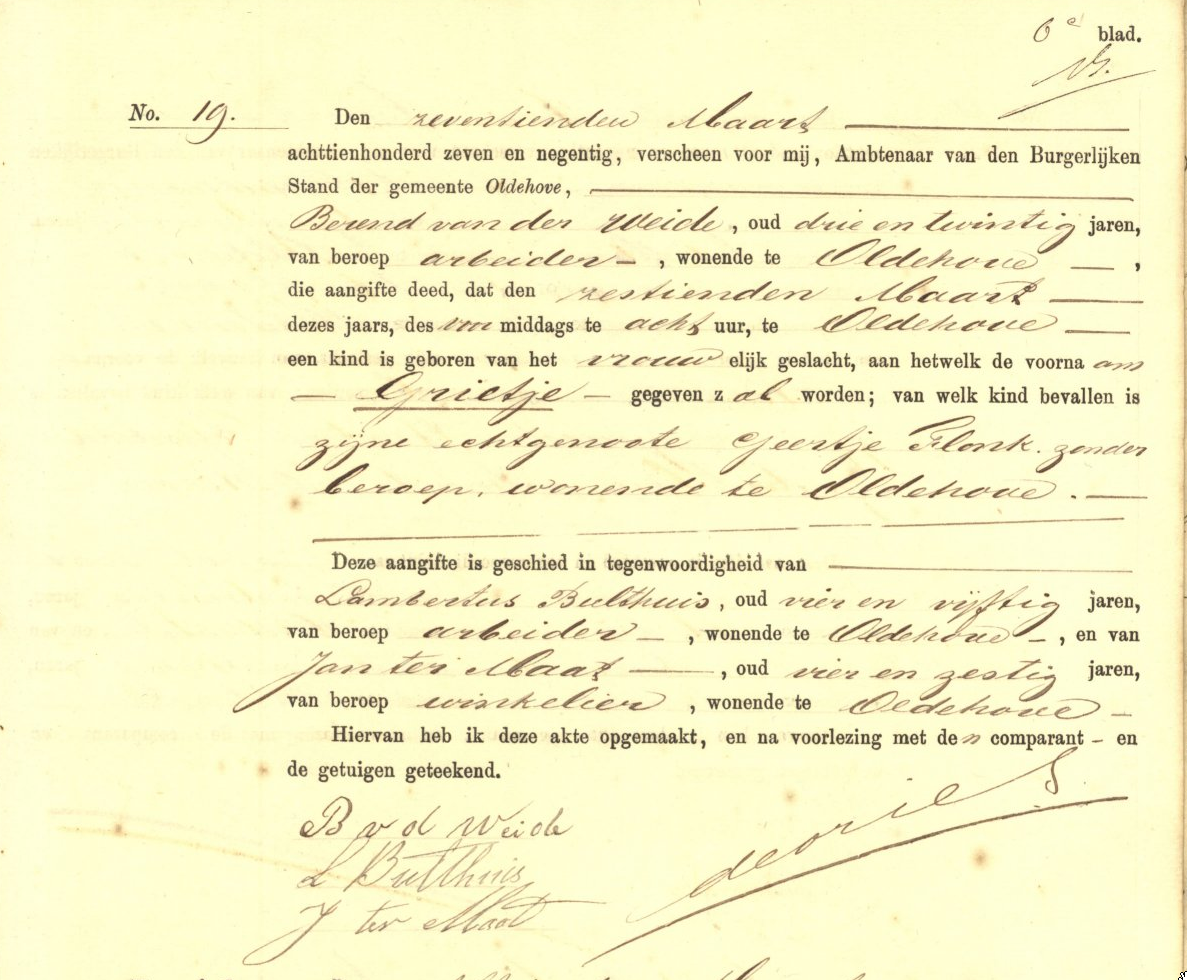 6e blad.
No. 19. Den zeventienden Maart
achttienhonderd zeven en negentig, verscheen voor mij, Ambtenaar van den Burgerlijken
Stand der gemeente Oldehove,
Berend van der Weide, oud drie en twintig jaren,
van beroep arbeider, wonende te Oldehove,
die aangifte deed, dat den zestienden Maart
dezes jaars, des voor middags te acht uur, te Oldehove
een kind is geboren van het vrouw elijk geslacht, aan hetwelk de voorna am
Grietje gegeven z al worden; van welk kind bevallen is
zijne echtgenoote Geertje Flonk. zonder
beroep. wonende te Oldehove.
Deze aangifte is geschied in tegenwoordigheid van
Lambertus Bulthuis, oud vier en vijftig jaren,
van beroep arbeider, wonende te Oldehove, en van
Jan ter Maat, oud vier en zestig jaren,
van beroep winkelier, wonende te Oldehove
Hiervan heb ik deze akte opgemaakt, en na voorlezing met den comparant - en
de getuigen geteekend.
B v d Weide
L Bulthuis
J ter Maat
de Vries